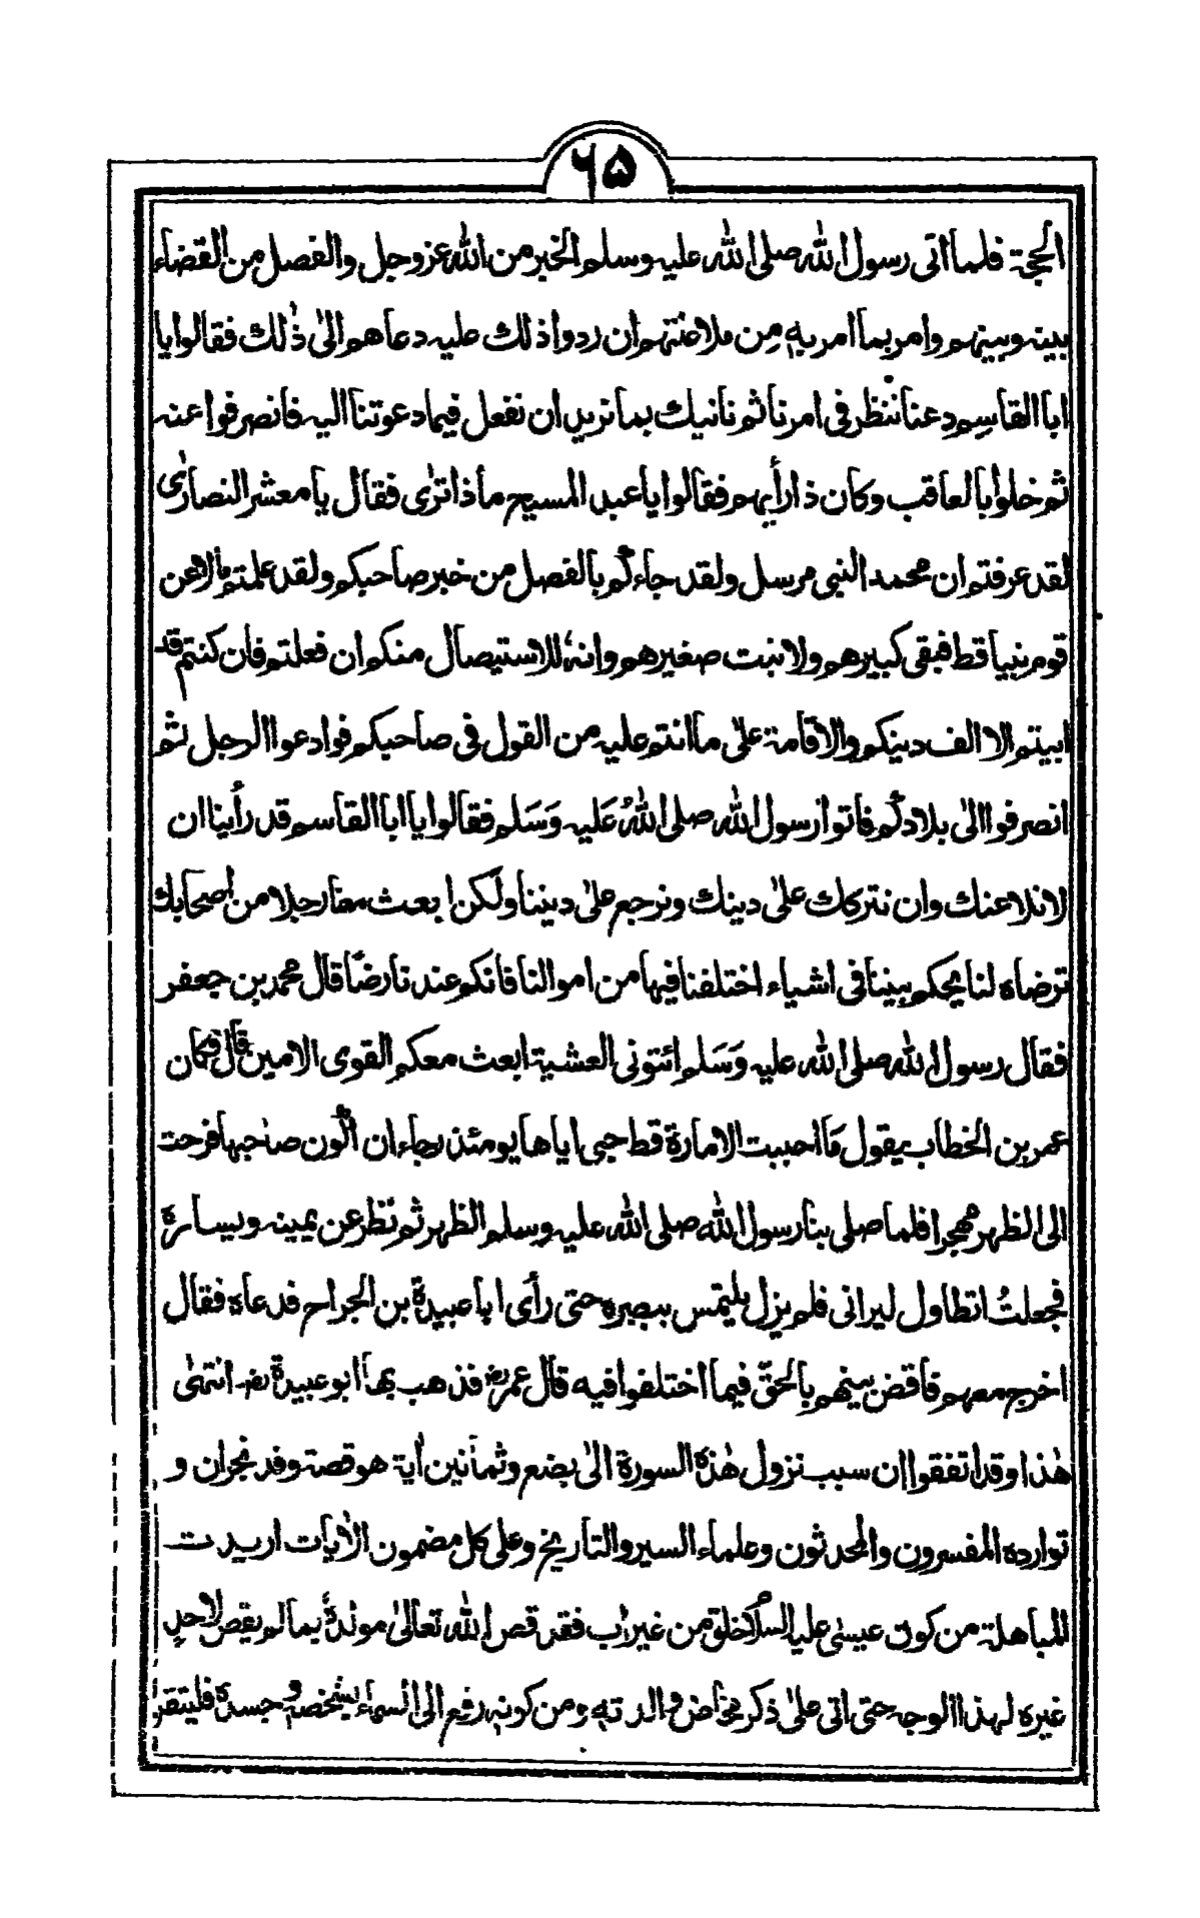 ۶۵
الحجۃ فلما اتی رسول اللہ صلی اللہ علیہ وسلم الخبر من اللہ عز وجل والفصل من القضاء
بینہ وبینہم وامر بما امر بہٖ مِن ملاعنتہم ان ردوا ذلك علیہ دعاھم الیٰ ذٰلك فقالوا یا
ابا القاسِم دعنا ننظر فی امرنا ثم ناتیك بما نرید ان نفعل فیما دعوتنا الیہ فانصرفوا عنہ
ثم خلوا بالعاقب وکان ذا رأیہم فقالوا یا عبد المسیح ماذا ترٰی فقال یا معشر النصارٰی
لقد عرفتم ان محمد النبی مرسل ولقد جاءکم بالفصل من خبر صاحبکم ولقد علمتم مالاعن
قوم نبیا قط فبقی کبیرھم ولا نبت صغیرھم وانہٗ للاستیصال منکم ان فعلتم فان کنتم قد
ابیتم الا الف دینکم والاقامۃ علیٰ ما انتم علیہ من القول فی صاحبکم فوادعوا الرجل ثم
انصرفوا الیٰ بلادکم فاتوا رسول اللہ صلی اللہُ عَلیہ وَسَلم فقالوا یا ابا القاسم قد رأینا ان
لا نلاعنك وان نترکك علیٰ دینك ونرجع علیٰ دیننا ولٰکن ابعث معنا رجلا من اصحابك
ترضاہ لنا یحکم بیننا فی اشیاء اختلفنا فیہا من اموالنا فانکم عندنا رضًا قال محمد بن جعفر
فقال رسول اللہ صلی اللہ علیہ وَسَلم ائتونی العشیۃ ابعث معکم القوی الامین قال فکان
عمر بن الخطاب یقول مَا احببت الامارۃ قط حبی ایاھا یومئذ رجاء ان اکون صاحبہا فرحت
الی الظہر مھجرا فلما صلی بنا رسول اللہ صلی اللہ علیہ وسلم الظہر ثم نظر عن یمینہ ویسارہ
فجعلتُ اتطاول لیرانی فلم یزل یلتمس ببصرہ حتی رأی ابا عبیدۃ بن الجراح فدعاہ فقال
اخرج معہم فاقض بینہم بالحقّ فیما اختلفوا فیہ قال عمر رض فذھب بہا ابو عبیدۃ رض انتھیٰ
ھٰذا وقد اتفقوا ان سبب نزول ھٰذہ السورۃ الیٰ بضع وثمانین اٰیۃ ھو قصۃ وفد نجران و
تواردہ المفسرون والمحدثون وعلماء السیر والتاریخ وعلی کل مضمون الاٰیات اریدت
للمباھلۃ من کون عیسٰی علیہ السلام خلق من غیر اب فقد قص اللہ تعالیٰ مولدہٗ بما لم یقص لاحدٍ
غیرہ لہذا الوجہ حتی اتی علیٰ ذکر مخاض والدتہٖ ومن کونہٖ رفع الی السماء بشخصہٖ وجسدہ فلیتقر